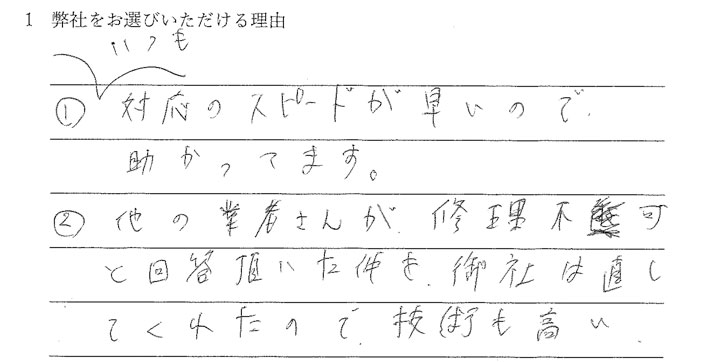 1 弊社をお選びいただける理由
いつも
① 対応のスピードが早いので、
助かってます。
② 他の業者さんが、修理不可
と回答頂いた件を、御社は直し
てくれたので、技術も高い、